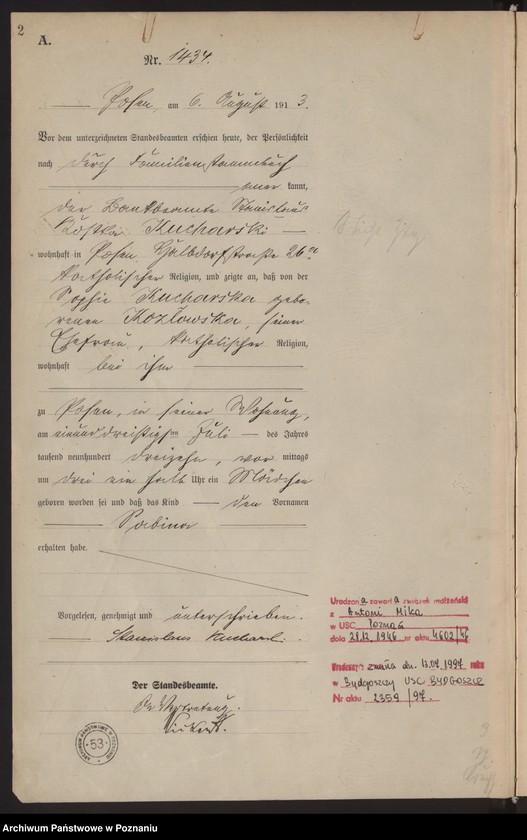 2
A.
Nr. 1434.
Posen, am 6. August 1913.
Vor dem unterzeichneten Standesbeamten erschien heute, der Persönlichkeit
nach durch Familienstammbuch
aner kannt,
der Bankbeamte Stanislaus
Kostka Kucharski
wohnhaft in Posen, Halbdorfstraße 26
katholischer Religion, und zeigte an, daß von der
Sophie Kucharska gebo-
renen Kozlowska, seiner
Ehefrau, katholischer Religion,
wohnhaft bei ihm
zu Posen, in seiner Wohnung,
am einunddreißigsten Juli des Jahres
tausend neunhundert dreizehn, vor mittags
um drei ein halb Uhr ein Mädchen
geboren worden sei und daß das Kind den Vornamen
Sabina
erhalten habe.
Vorgelesen, genehmigt und unterschrieben.
Stanislaus Kucharski.
Der Standesbeamte.
In Vertretung.
Urodzona zawarła związek małżeński
z Antoni Mika
w USC Poznań
dnia 28.12.1946 nr aktu 4602/46
zmarła dn. 13.07.1997 roku
w Bydgoszczy USC BYDGOSZCZ
Nr aktu 2359/97.
ARCHIWUM PAŃSTWOWE W POZNANIU
53
Archiwum Państwowe w Poznaniu